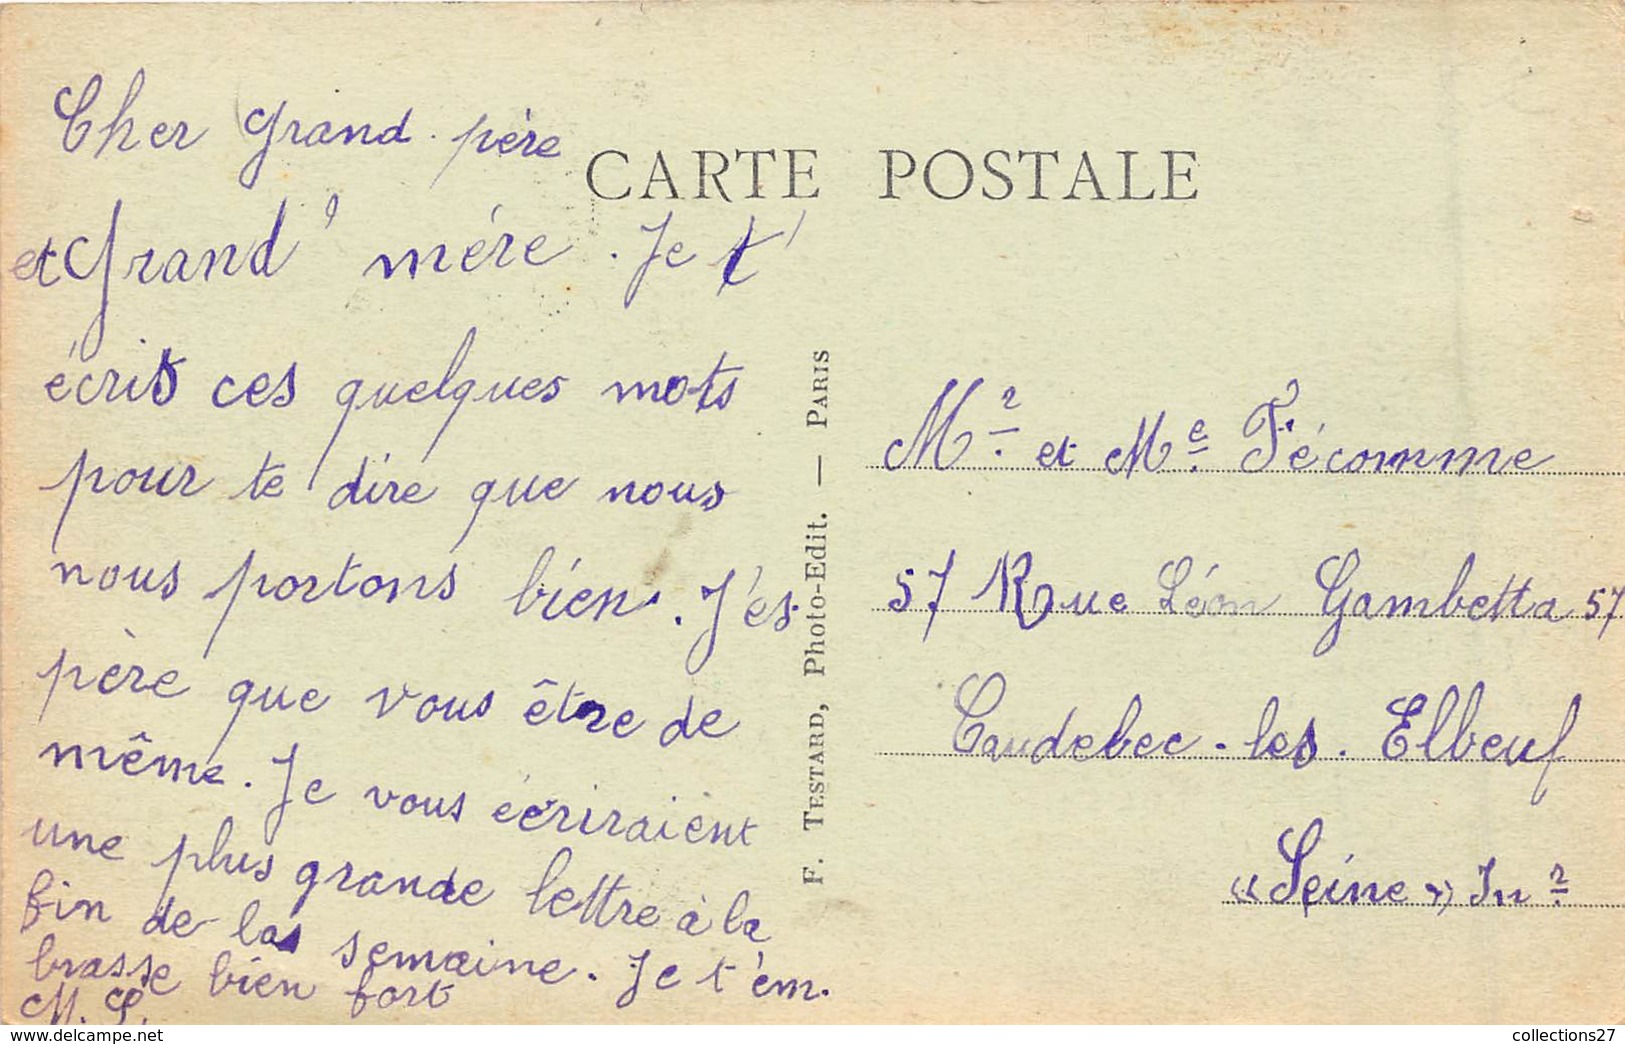 Cher Grand-père
CARTE POSTALE
et Grand' mére. Je t'
écris ces quelques mots
pour te dire que nous
nous portons bien. J'es-
père que vous être de
même. Je vous écriraient
une plus grande lettre à la
fin de la semaine. Je t'em-
brasse bien fort
M. L.
F. TESTARD, Photo-Edit. — PARIS
Mr. et Me. Fécomme
57 Rue Léon Gambetta 57
Caudebec-les-Elbeuf
«Seine» Inr
collections27
collections27